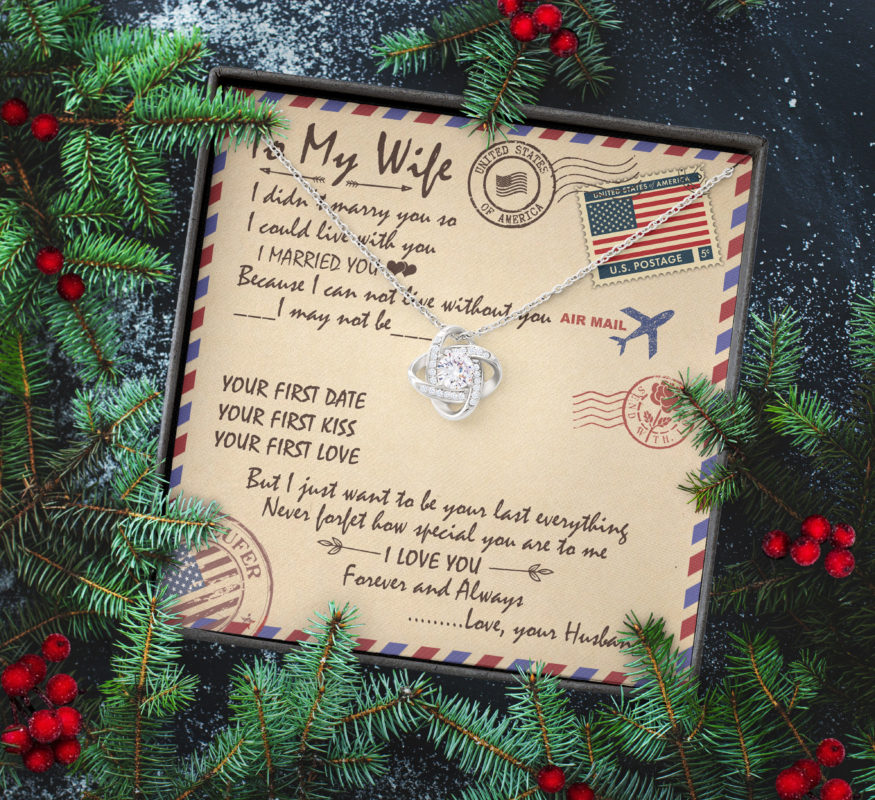 To My Wife
I didn't marry you so
I could live with you
I MARRIED YOU
Because I can not live without you
____I may not be____
YOUR FIRST DATE
YOUR FIRST KISS
YOUR FIRST LOVE
But I just want to be your last everything
Never forfet how special you are to me
I LOVE YOU
Forever and Always
.........Love, your Husban
UNITED STATES
OF AMERICA
UNITED STATES of AMERICA
U.S. POSTAGE 5¢
AIR MAIL
SEND
WITH
UFER